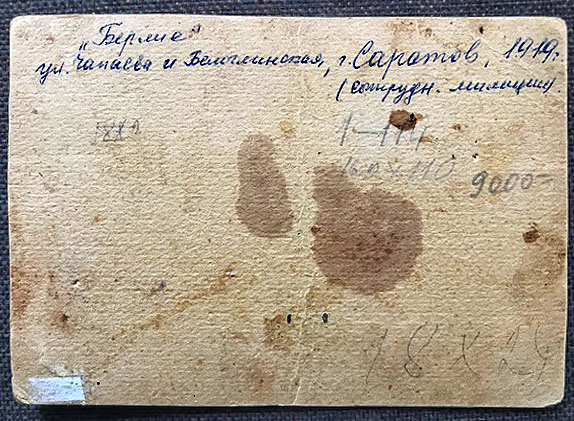 „Берлие"
ул. Чапаева и Белоглинская, г. Саратов, 1919г.
(сотрудн. милиции)
1-114
160 x 110
9000-
18 x 24